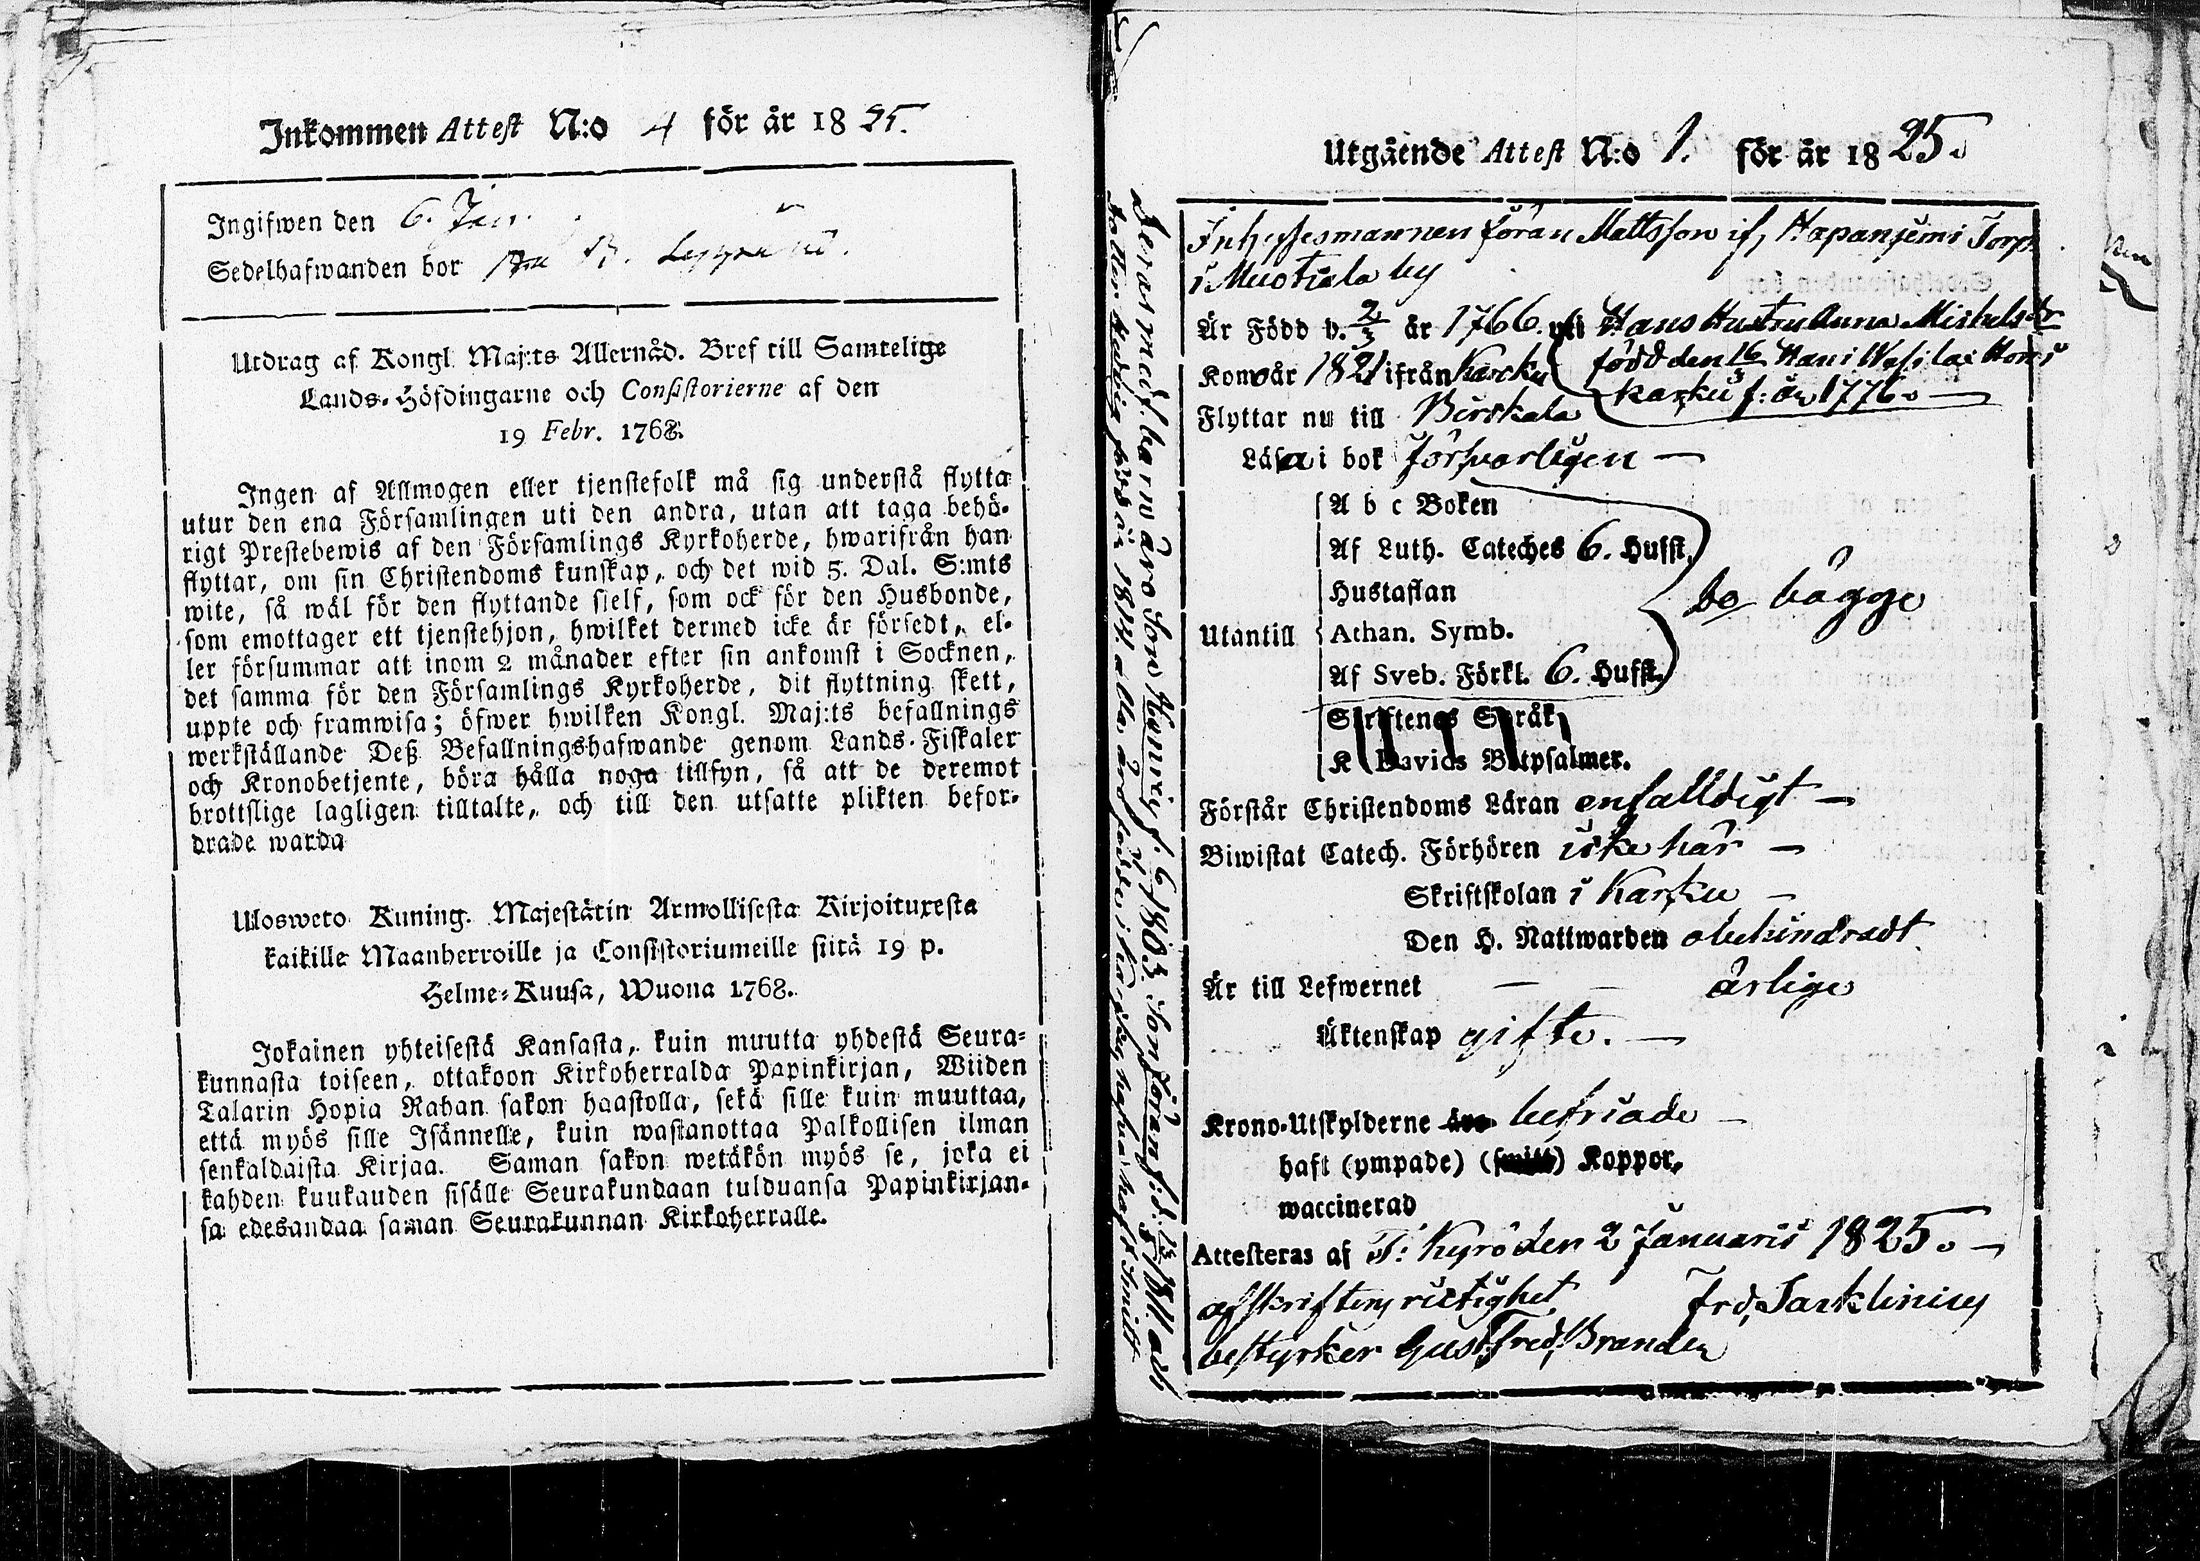 Inkommen Attest N:o 4 för år 1825.
Ingifwen den 6. Jan.
Sedelhafwanden bor
Utdrag af Kongl. Maj:ts Allernåd. Bref till Samtelige
Lands-Höfdingarne och Consistorierne af den
19 Febr. 1768.
Ingen af Allmogen eller tjenstefolk må sig understå flytta
utur den ena Församlingen uti den andra, utan att taga behö-
rigt Prestebewis af den Församlings Kyrkoherde, hwarifrån han
flyttar, om sin Christendoms kunskap, och det wid 5. Dal. S:mts
wite, så wäl för den flyttande sielf, som ock för den Husbonde,
som emottager ett tjenstehjon, hwilket dermed icke är försedt, el-
ler försummar att inom 2 månader efter sin ankomst i Socknen,
det samma för den Församlings Kyrkoherde, dit flyttning skett,
uppte och framwisa; öfwer hwilken Kongl. Maj:ts befallnings
werkställande Deß Befallningshafwande genom Lands-Fiskaler
och Kronobetjente, böra hålla noga tillsyn, så att de deremot
brottslige lagligen tilltalte, och till den utsatte plikten befor-
drade warda
Ulosweto Kuning. Majestätin Armollisesta Kirjoituxesta
kaikille Maanherroille ja Consistoriumeille siitä 19 p.
Helme-Kuusa, Wuona 1768.
Jokainen yhteisestä Kansasta, kuin muutta yhdestä Seura-
kunnasta toiseen, ottakoon Kirkoherralda Papinkirjan, Wiiden
Talarin Hopia Rahan sakon haastolla, sekä sille kuin muuttaa,
että myös sille Isännelle, kuin wastanottaa Palkollisen ilman
senkaldaista Kirjaa. Saman sakon wetäkön myös se, joka ei
kahden kuukauden sisälle Seurakundaan tulduansa Papinkirjan-
sa edesandaa saman Seurakunnan Kirkoherralle.
Utgående Attest N:o 1. för år 1825.
Inhysesmannen Jöran Mattsson if, Hapanjemi Torp
i Muotiala by
Är Född d. 2/3 år 1766. Hans Hustru Anna Michelsdr
Kom år 1821 ifrån Karcku född den 16/3
Karku f: år 1776.
Flyttar nu till Birkala
Läsa i bok försvarligen
A b c Boken
Af Luth. Cateches 6. Hufst.
Hustaflan
Utantill Athan. Symb.
Af Sveb. Förkl. 6. Hufst.
bägge
Skriftenes Språk,
K Davids Botpsalmer.
Förstår Christendoms Läran enfalldigt
Biwistat Catech. Förhören icke här
Skriftskolan i Karku
Den H. Nattwarden obehindradt
Är till Lefwernet ärlige
Äktenskap gifte.
Krono-Utskylderne befriade
haft (ympade) Koppor,
waccinerad
Attesteras af T: Kyro den 2 Januarii 1825.
afskriftens riktighet
bestyrker Gust. Fred. Brander
Deras med f. barn äro Son Henric f. 6/1 1803. Son Jöran f: d. 1811. och
Dotter Hedvig född år 1814 alla äro födde i Karcku, hafva haft